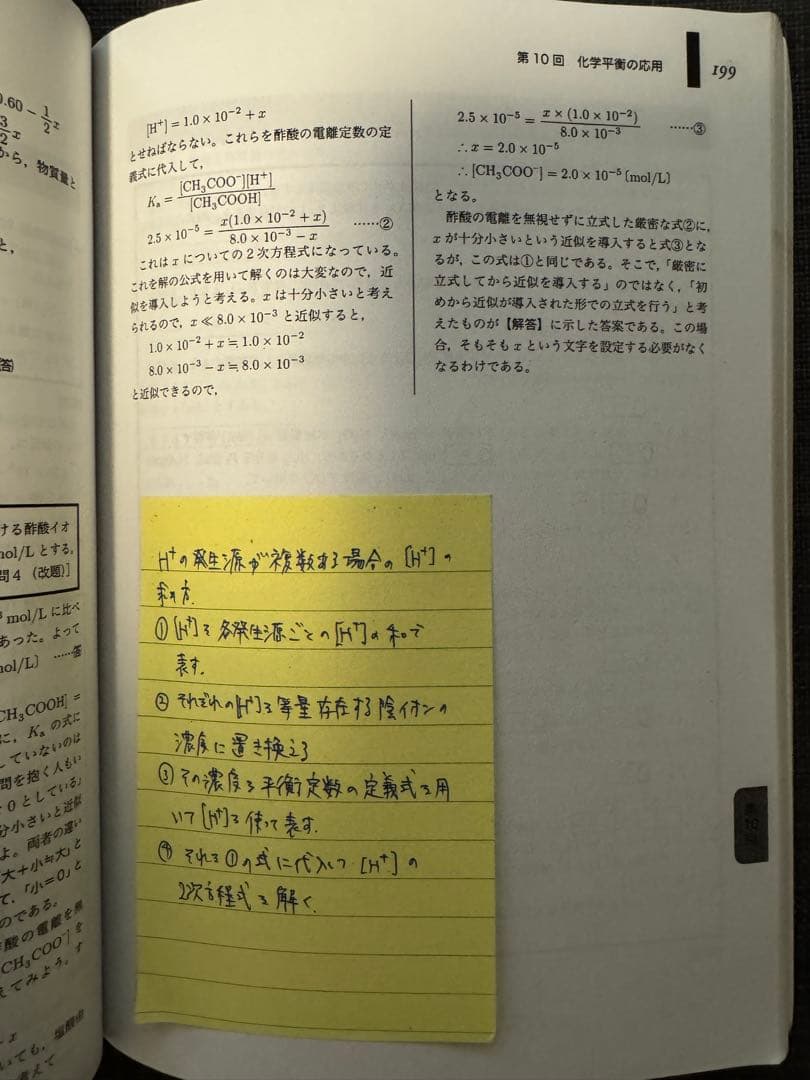 第10回 化学平衡の応用
199
0.60 − 1/2 x
3/2 x
から，物質量と
と，
答)
ける酢酸イオ
mol/L とする。
問4 (改題)]
mol/L に比べ
あった。よって
mol/L〕 ……答
CH₃COOH] =
に，Kₐ の式に
していないのは
問を抱く人もい
≒ 0 としている」
分小さいと近似
よ。両者の違い
「大＋小≒大」と
て，「小＝0」と
のである。
酸の電離を無
CH₃COO⁻] を
えてみよう。す
x
いても，塩酸由
考えて
[H⁺] = 1.0 × 10⁻² + x
とせねばならない。これらを酢酸の電離定数の定
義式に代入して，
Kₐ = [CH₃COO⁻][H⁺] / [CH₃COOH]
2.5 × 10⁻⁵ = x(1.0 × 10⁻² + x) / (8.0 × 10⁻³ − x) ……②
これは x についての2次方程式になっている。
これを解の公式を用いて解くのは大変なので，近
似を導入しようと考える。x は十分小さいと考え
られるので，x ≪ 8.0 × 10⁻³ と近似すると，
1.0 × 10⁻² + x ≒ 1.0 × 10⁻²
8.0 × 10⁻³ − x ≒ 8.0 × 10⁻³
と近似できるので，
2.5 × 10⁻⁵ = x × (1.0 × 10⁻²) / 8.0 × 10⁻³ ……③
∴ x = 2.0 × 10⁻⁵
∴ [CH₃COO⁻] = 2.0 × 10⁻⁵〔mol/L〕
となる。
酢酸の電離を無視せずに立式した厳密な式②に，
x が十分小さいという近似を導入すると式③とな
るが，この式は①と同じである。そこで，「厳密に
立式してから近似を導入する」のではなく，「初
めから近似が導入された形での立式を行う」と考
えたものが【解答】に示した答案である。この場
合，そもそも x という文字を設定する必要がなく
なるわけである。
H⁺の発生源が複数ある場合の[H⁺]の
求め方
① [H⁺]を各発生源ごとの[H⁺]の和で
表す.
② それぞれの[H⁺]を等量存在する陰イオンの
濃度に置き換える
③ その濃度を平衡定数の定義式を用
いて[H⁺]を使って表す.
④ それを①の式に代入して[H⁺]の
2次方程式を解く.
第10回